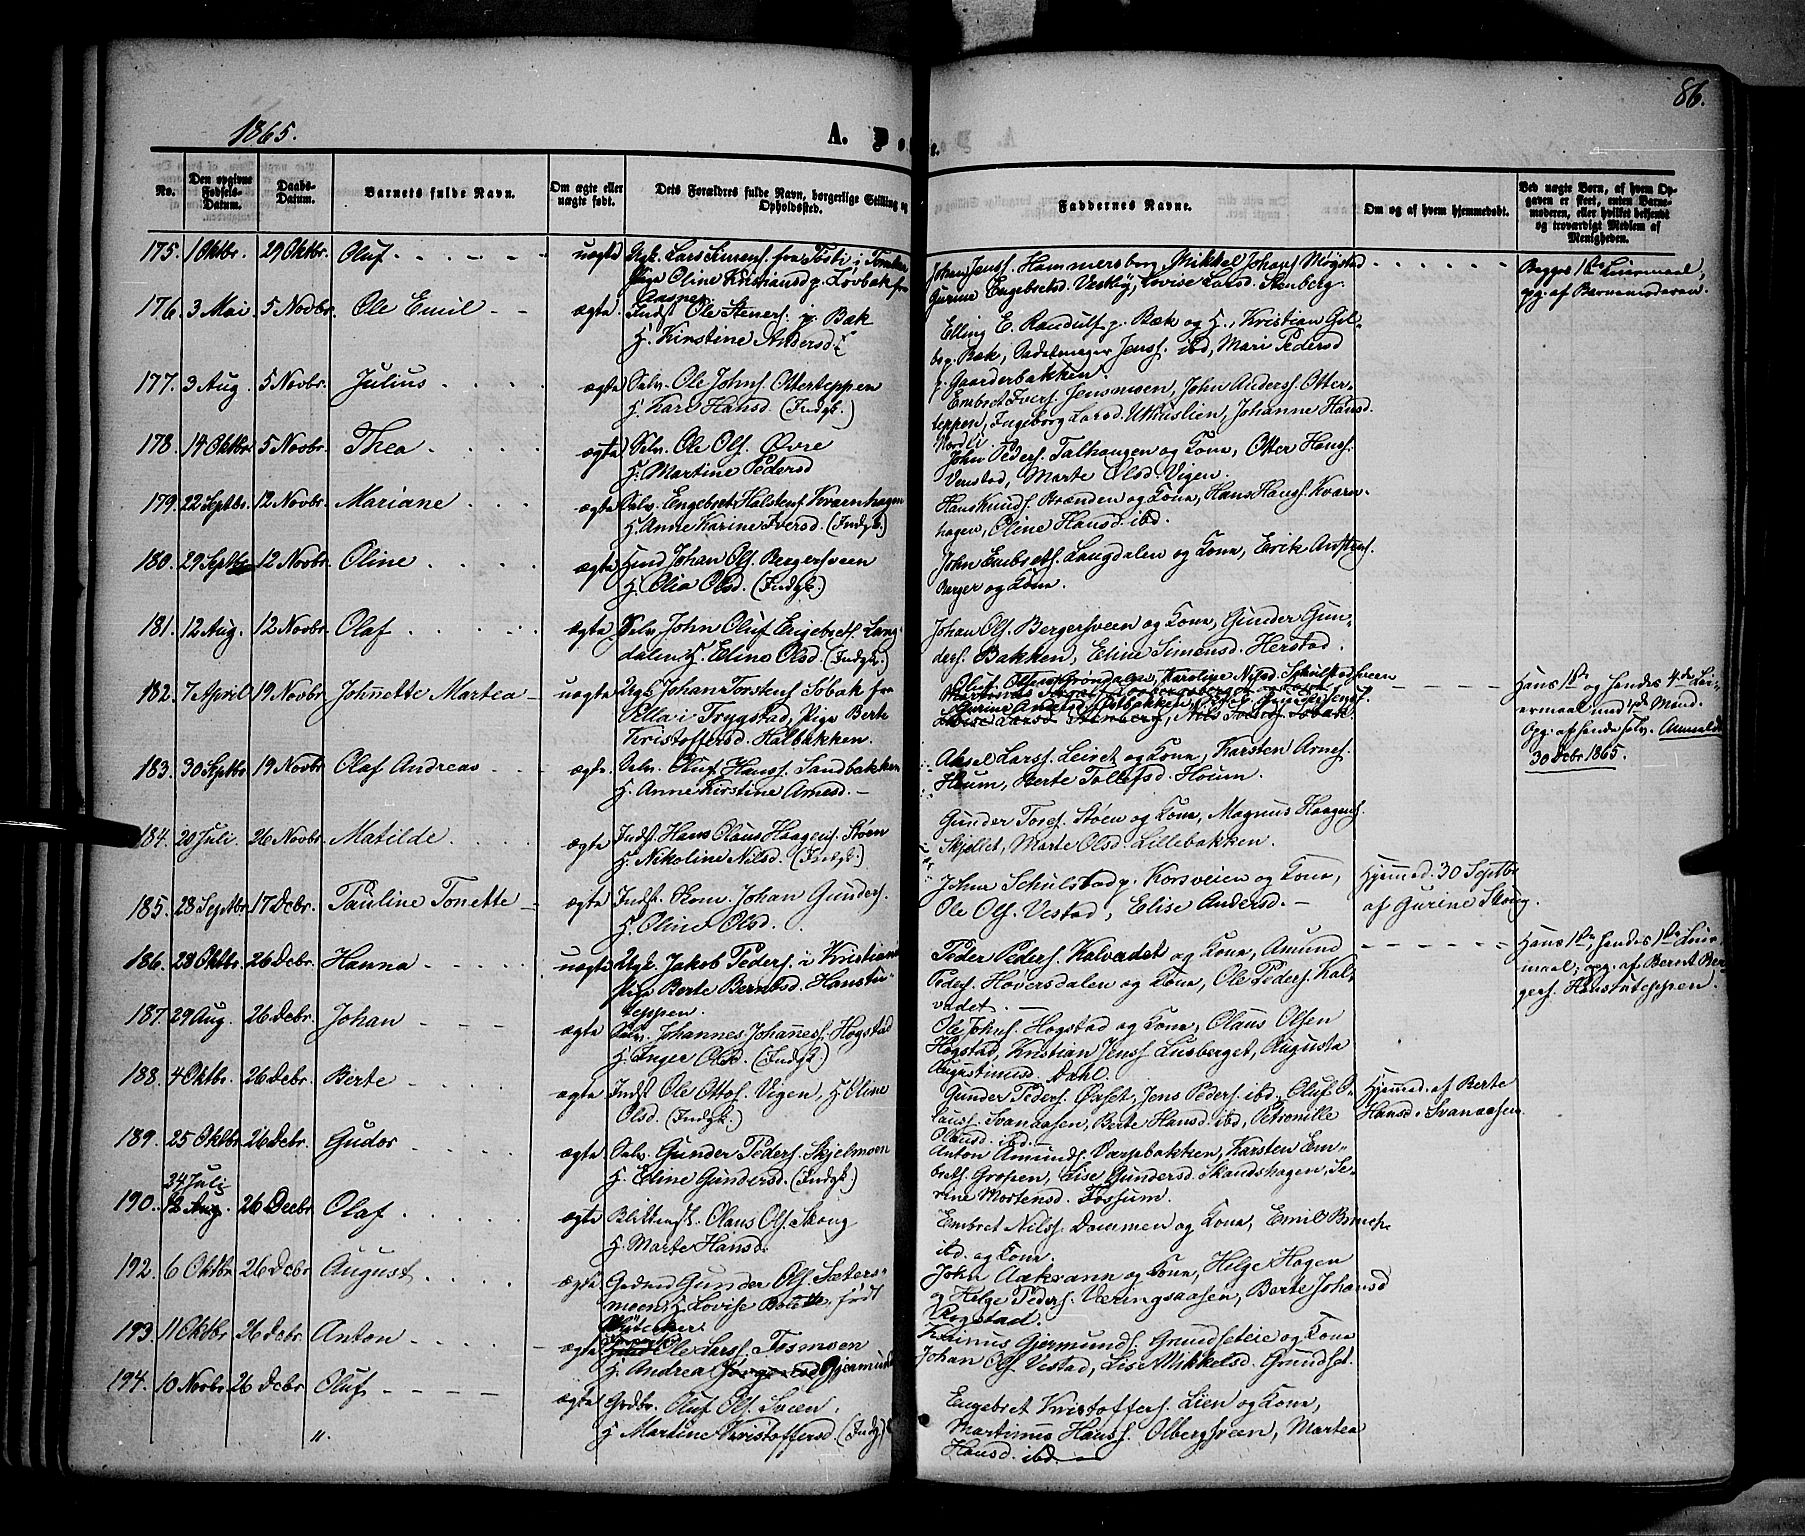 86.
1865.
A.
No.
Den opgivne Fødsels-Datum.
Daabs-Datum.
Barnets fulde Navn.
Om ægte eller uægte født.
Dets Forældres fulde Navn, borgerlige Stilling og Opholdssted.
Faddernes Navne.
Om og af hvem hjemmedøbt.
Ved uægte Børn, af hvem Opgaven er skeet, enten Barnemoderen, eller hvilket betjent og troværdigt Medlem af Menigheden.
175. 1 Oktbr. 29 Oktbr. Oluf
uægte Ugk. Lars Simens. fra Tosti i
Pige Oline Kristiansd. p. Lövbak fra
Aasnes
Johan Jens. Hammersborg, Mikkel Johans. Möystad
Gurine Engebretsd. Veslöy, Lovise Larsd. Stenberg.
Begges 1ste Leiermaal,
opg. af Barnemoderen.
176. 3 Mai 5 Novbr. Ole Emil
ægte Indst Ole Steners. p. Bæk
H. Kirstine Andersd.
Elling E. Randulf p. Bæk og H., Kristian
p. Bæk, Sadelmager Jens. ibd, Mari Pedersd
p. Gaarderbakken.
177. 3 Aug. 5 Novbr. Julius
ægte Selv. Ole Johns. Otterteppen
H. Kari Hansd. (Indgk.)
Embret Ivers. Jensmoen, John Anders. Otter-
teppen, Ingeborg Larsd. Uthuslien, Johanne Hansd.
Nordli
178. 14 Oktbr. 5 Novbr. Thea
ægte Selv. Ole Ols. Øvre
H. Martine Pedersd
John Peders. Talhaugen og Kone, Otter Hans.
Venstad, Marte Olsd. Vigen.
179. 22 Septbr. 12 Novbr. Mariane
ægte Selv. Engebret Halstens. Kværnhagen
H. Anne Karine Iversd. (Indgk.)
Hans Knuds. Brænden og Kone, Hans Hans. Kværn-
hagen, Oline Hansd. ibd.
180. 29 Septbr 12 Novbr. Oline
ægte Huusmd Johan Ols. Bergersveen
H. Olia Olsd. (Indgk.)
John Embrets. Langdalen og Kone, Erik
Berger og Kone.
181. 12 Aug. 12 Novbr. Olaf
ægte Selv. John Oluf Engebrets. Lang-
dalen H. Eline Olsd. (Indgk.)
Johan Ols. Bergersveen og Kone, Gunder Gun-
ders. Bakken, Eline Simensd. Herstad.
182. 7 April 19 Novbr. Johnette Martea
uægte Ugk. Johan Torstens. Söbak fra
Vella i Trygstad, Pige Berte
Kristoffersd. Halbakken.
Oluf Olsen Gröndalen, Karoline Nilsd. Schulstadsveen
Hans 1ste og hendes 4de Lei-
ermaal med 4de Mand.
Opg. af hende selv. Anmeldt
30 Debr 1865.
183. 30 Septbr 19 Novbr. Olaf Andreas
ægte Selv. Oluf Hans. Sandbakken
H. Anne Kirstine Arnesd.
Aksel Lars. Leiret og Kone, Karsten Arnes.
Houm, Berte Tollefsd. Houm.
184. 20 Juli. 26 Novbr. Matilde
ægte Indst. Hans Olaus Haagens. Støen
H. Nikoline Nilsd. (Indgk.)
Gunder Tores. Støen og Kone, Magnus Haagens.
Skjöliet, Marte Olsd. Lillebakken.
185. 28 Septbr 17 Debr. Pauline Tonette
ægte Indst. Skom. Johan Gunders.
H. Oline Olsd.
Johan Schulstad p. Korsveien og Kone,
Ole Ols. Vestad, Elise Andersd.
Hjemmed. 30 Septbr
af Gurine Skoug.
186. 28 Oktbr. 26 Debr. Hanna
uægte Ugk. Jakob Peders. i Kristiania
Pige Berte Berntsd. Hanstu-
teppen.
Peder Peders. Kalvædet og Kone, Amund
Peders. Hoversdalen og Kone, Ole Peders. Kal-
vædet.
Hans 1ste, hendes 1ste Leier-
maal; opg. af Bernt Ber-
gers. Hanstuteppen.
187. 29 Aug. 26 Debr. Johan
ægte Selv. Johannes Johannes. Hogstad
H. Inger Olsd. (Indgk.)
Ole Johns. Hogstad og Kone, Olaus Olsen
Hogstad, Kristian Jens. Lusberget, Augusta
Augustinusd. Dahl.
188. 4 Oktbr. 26 Debr. Berte
ægte Indst Ole Ottos. Vigen, H. Oline
Olsd. (Indgk.)
Gunder Peders. Øxset, Jens Peders. ibd, Oluf O-
laus. Svanaasen, Berte Hansd. ibd, Petronille
Olausd. ibd.
Hjemmed. af Berte
Hansd. Svanaasen
189. 25 Oktbr 26 Debr. Gudor
ægte Selv. Gunder Peders. Skjelmoen
H. Eline Gundersd. (Indgk.)
Anton Amunds. Værpbakken, Karsten Em-
brets. Gropen, Lise Gundersd. Skandshagen, Se-
rine Mortensd. Fossum.
24 Juli
190. 12 Aug. 26 Decbr. Olaf
ægte Blikkensl. Olaus Ols. Skoug
H. Marte Hansd.
Embret Nils. Dammen og Kone, Emil
ibd. og Kone.
192. 6 Oktbr 26 Debr. August
ægte Gadmd Gunder Ols. Sæters-
moen, H. Lovise Bolette født
Bötcker
John Aakrann og Kone, Helge Hagen
og Helge Peders. Væringsaasen, Berte Johansd
Rogstad.
193. 11 Oktbr 26 Debr. Anton
ægte Ole Lars. Tesmoen
H. Andrea
Karinus Gjermunds. Grundseteie og Kone
Johan Ols. Vestad, Lise Mikkelsd. Grundset.
194. 10 Novbr. 26 Debr. Oluf
ægte Grdbr. Oluf Ols. Sveen.
H. Martine Kristoffersd. (Indgk)
Engebret Kristoffers. Lien og Kone,
Martinus Hans. Olbergsveen, Martea
Hansd. ibd.